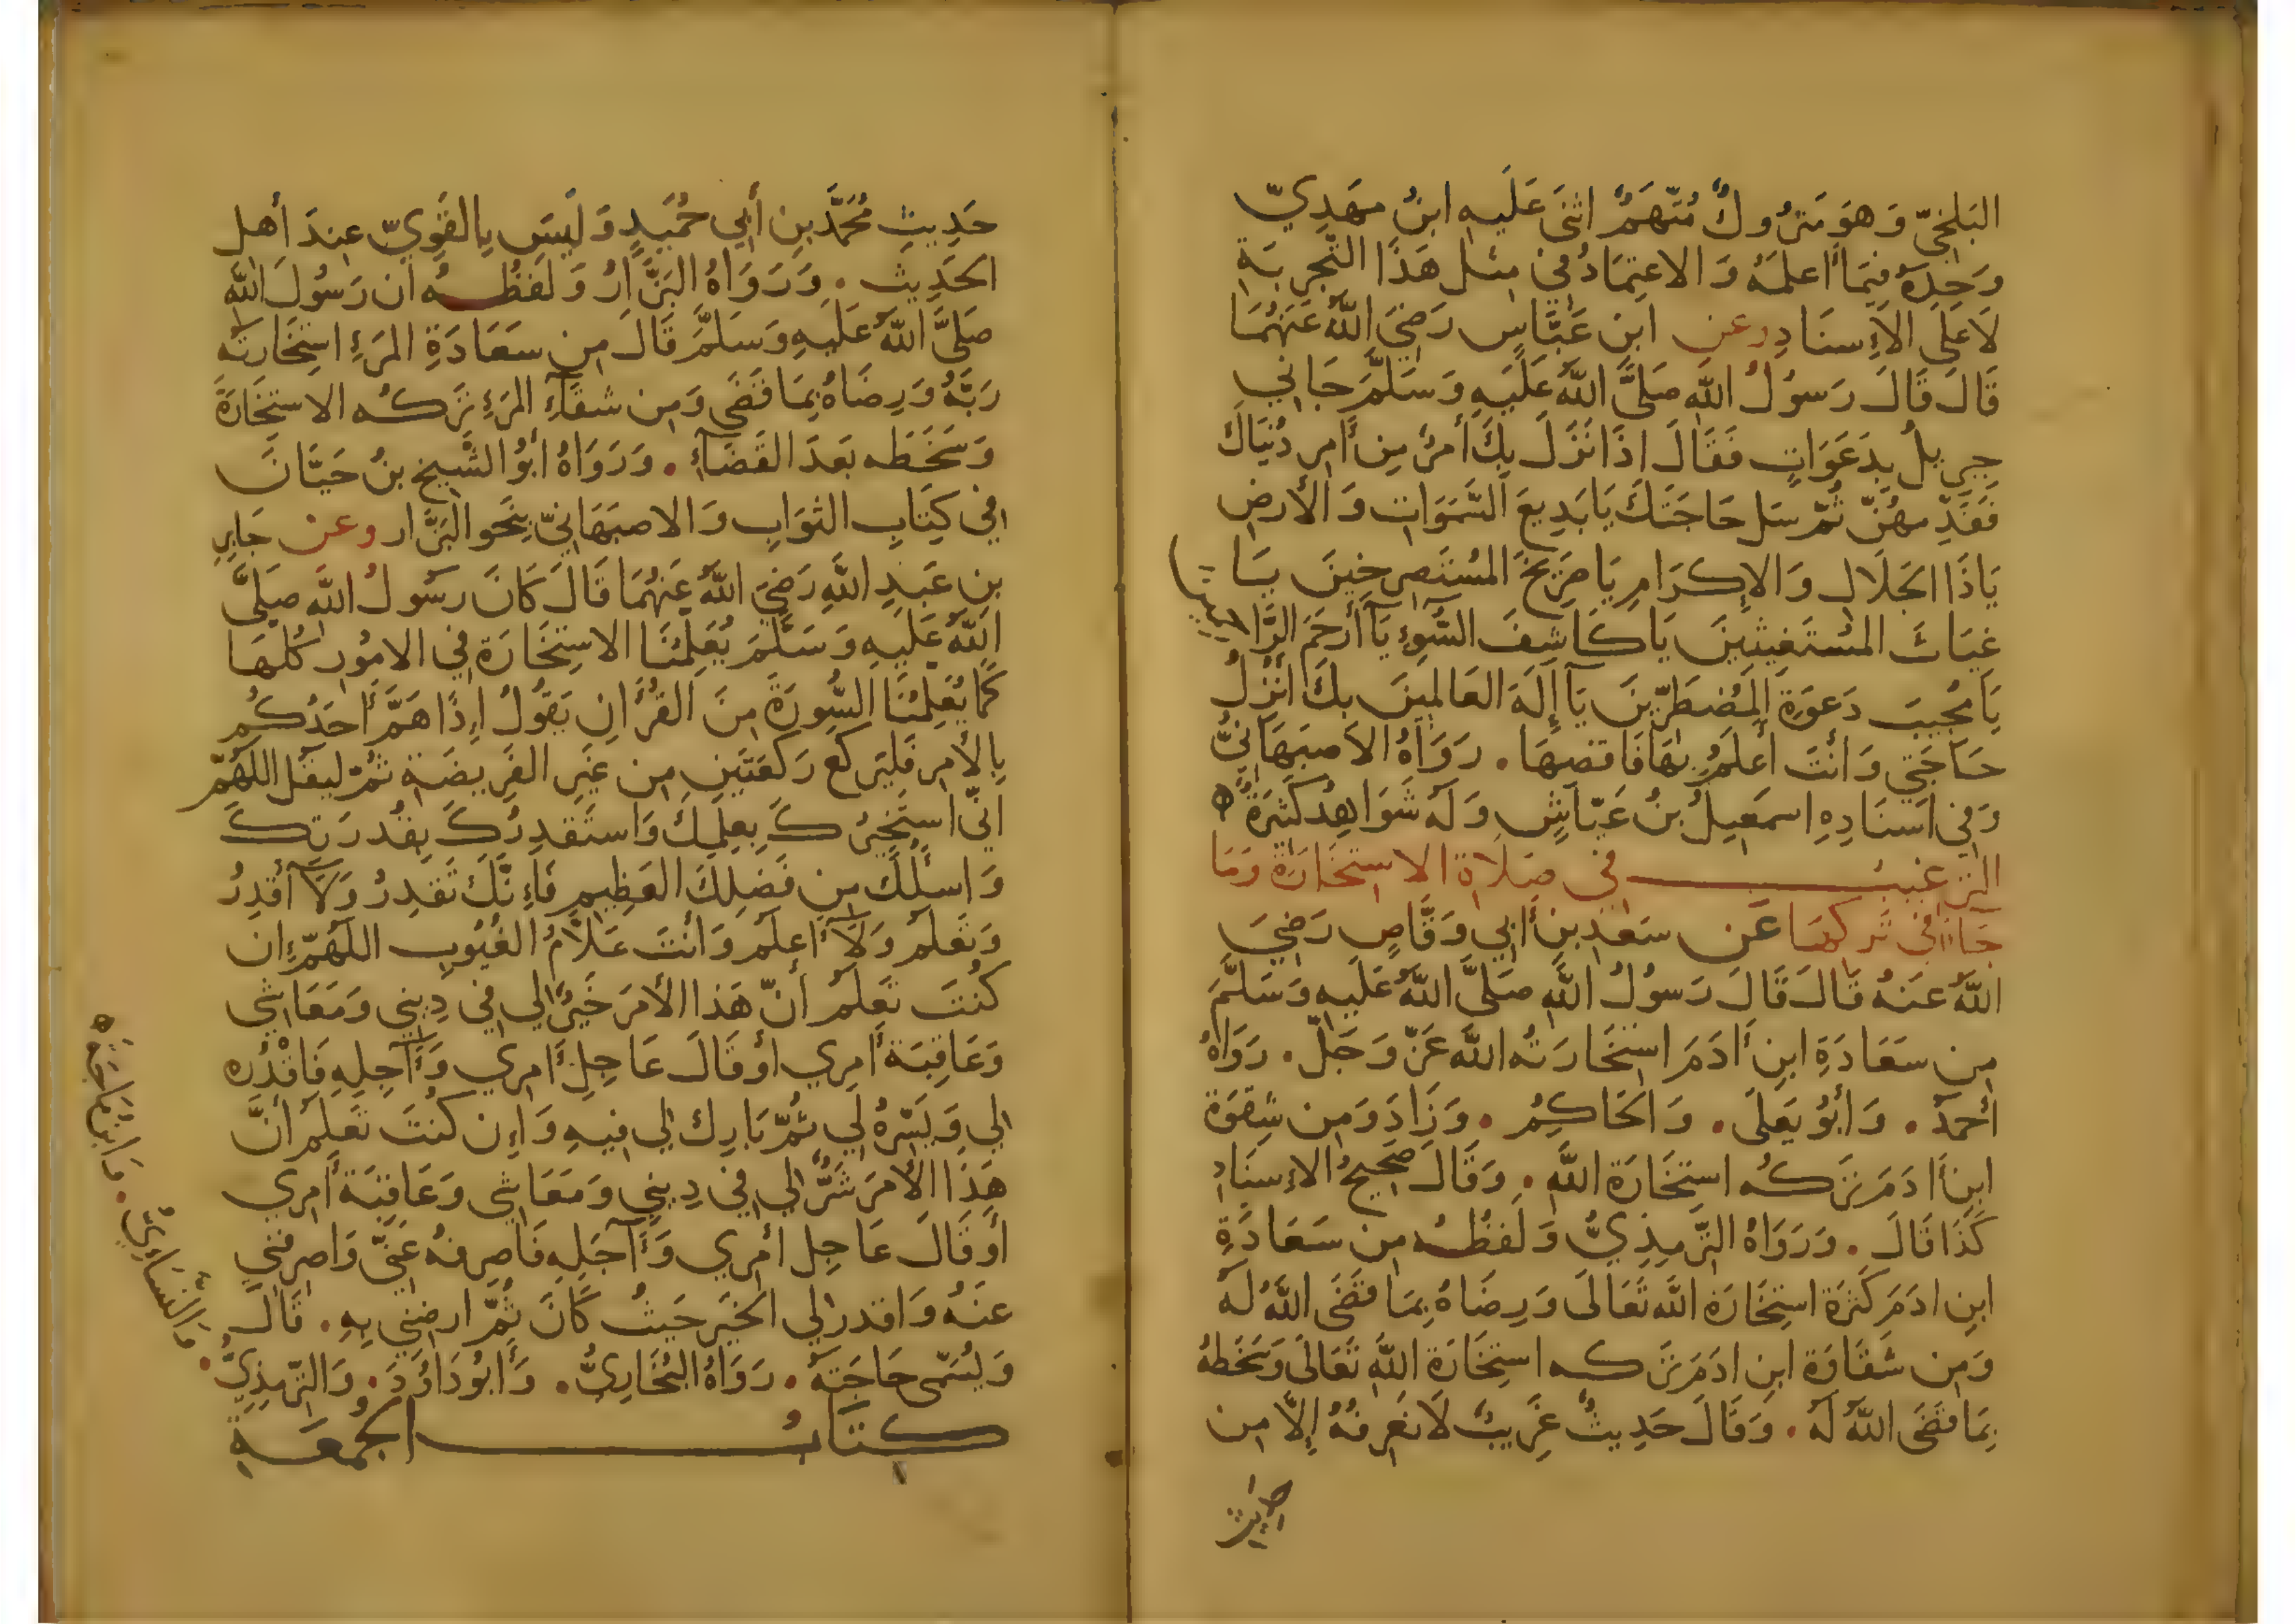 البَلخِيّ وَهوَ مَترُوكٌ مُتّهَمٌ اثنَى عَلَيهِ ابنُ مهَدِيّ
وَحدَهُ فيمَا أَعلمَهُ وَالاعتِمَادُ في مثل هَذَا التّجرِبَةِ
لَا عَلَى الإِسنَادِ وعن ابن عَبَّاسٍ رَضيَ اللَّهُ عَنهُمَا
قَالَ قَالَ رَسوُلُ اللَّه صَلىَّ اللَّهُ عَلَيهِ وَسَلَّمَ جَاني
جِبرِيلُ بِدَعَوَاتٍ فَقَالَ اذَا نَزَلَ بِكَ أَمرٌ مِن أَمرِ دُنيَاكَ
فَقَدِّمهُنّ ثُمّ سَل حَاجَتَكَ يَا بَدِيعَ السَّمَوَاتِ وَالأَرضِ
يَاذَا الجَلَالِ وَالإِكرَامِ يَا صَرِيخَ المُستَصرِخِينَ يَا
غِيَاثَ المُستَغِيثِينَ يَا كَاشِفَ السُّوءِ يَآ أَرحَمَ الرَّاحمين
يَا مُجِيبَ دَعوَةِ المُضطَرِّينَ يَآ إِلَهَ العَالمِينَ بكَ أنزلُ
حَاجَتِي وَأَنتَ أَعلَمُ بهَا فَاقضِهَا . رَوَاهُ الأَصبَهَانِيُّ
وَفي اسنَادِهِ اسمَعِيلُ بنُ عَيّاشٍ وَلَه شَوَاهِدُ كَثيَرةٌ ه
الترغيبُ في صَلاة الاستخَارَة وَمَا
جَاءَ في تَركهَا عَن سَعَدِ بنِ أَبي وَقَّاصٍ رَضيَ
اللَّهُ عَنهُ قَالَ قَالَ رَسوُلُ اللَّهِ صَلىَّ اللَّهُ عَلَيهِ وَسَلَّمَ
مِن سَعَادَةِ ابنِ أَدَمَ استخَارَتُه اللَّه عَزّ وَجَلّ . رَوَاهُ
أَحمَدُ . وَأَبوُ يَعلَى . وَالحَاكِمُ . وَزَادَ وَمِن شِقوَةِ
ابنِ أَدَمَ تَركُه استِخَارَة اللَّه . وَقَالَ صَحِيحُ الإسنَادِ
كَذَا قَالَ . وَرَوَاهُ التِّرمِذِيُّ وَلَفظُه مِن سَعَادَةِ
ابنِ ادَمَ كَثرَة استِخَارَة اللَّه تَعَالَى وَرِضَاهُ بِمَا قَضَى اللَّهُ لَه
وَمِن شَقَاوَة ابنِ ادَمَ تَركه استِخَارَة اللَّه تَعَالَى وَسَخَطهُ
بِمَا قَضَى اللَّهُ لَه . وَقَالَ حَدِيثٌ غَرِيبٌ لَا نَعرِفهُ إِلّا مِن
حديث
حَدِيثِ مُحَمَّد بنِ أَبي حُمَيدٍ وَلَيسَ بِالقَوِيّ عِندَ أَهل
الحَدِيث . وَرَوَاهُ البَزَّارُ وَلَفظُه ان رَسُولَ اللَّه
صَلىَّ اللَّهُ عَلَيهِ وَسَلَّمَ قَالَ مِن سَعَادَةِ المَرءِ استِخَارَتُه
رَبَّهُ وَرِضَاهُ بِمَا قَضَى وَمِن شقَآءِ المَرءِ تَركُه الاستخَارَةَ
وَسَخَطه بَعدَ القَضَآءِ . وَرَوَاهُ أَبوُ الشَّيخ بنُ حَيَّانَ
في كِتَابِ الثوَابِ وَالاصبَهَانيّ بِنَحو البَزَّار وعن جَابِر
بن عَبدِ اللَّهِ رَضيَ اللَّهُ عَنهُمَا قَالَ كَانَ رَسُولُ اللَّه صَلىَّ
اللَّهُ عَلَيهِ وَسَلَّمَ يُعَلِّمُنَا الاستِخَارَةَ في الامُور كلّهَا
كَمَا يُعَلِّمُنَا السُّورَةَ مِنَ القُرأنِ يَقوُلُ إِذَا هَمَّ أَحَدُكُم
بِالأَمرِ فَليَركَع رَكعَتَينِ مِن غَيرِ الفَرِيضَة ثُمّ ليقُل اللّهُمّ
انّي استَخِيرُكَ بِعِلمِكَ وَاستَقدِرُكَ بِقُدرَتِكَ
وَاسئَلُكَ مِن فَضلِكَ العَظِيمِ فَإِنَّكَ تَقدِرُ وَلَآ أَقدِرُ
وَتَعلَم وَلَآ أَعلَم وَأَنتَ عَلَّامُ الغُيُوبِ اللّهُمّ إِن
كُنتَ تَعلَم أَنّ هَذا الأَمرَ خَيرٌ لي في دِيني وَمَعَاشي
وَعَاقِبَة أَمرِي أَو قَالَ عَاجِل أَمري وَآجِلِهِ فَاقْدُره
لي وَيَسِّرهُ لي ثُمّ بَارك لي فيهِ وَإِن كُنتَ تَعلَم أنَّ
هَذَا الأَمرَ شَرٌّ لي في دِيني وَمَعَاشي وَعَاقِبَة أَمرِي
أَو قَالَ عَاجِل أَمرِي وَآجَلِه فَاصرِفهُ عَنّي وَاصرِفنِي
عَنهُ وَاقدر لي الخَيَر حَيثُ كَانَ ثُمَّ ارضِنِي بِهِ . قَالَ
وَيُسَمّي حَاجَتَهُ . رَوَاهُ البُخَارِيُّ . وَأَبوُ دَاوُدَ . وَالتِّرمِذِيُّ .
وَالنّسَاءِيُّ . وَابنُ مَاجَة ه
كتَابُ الجُمُعَةِ